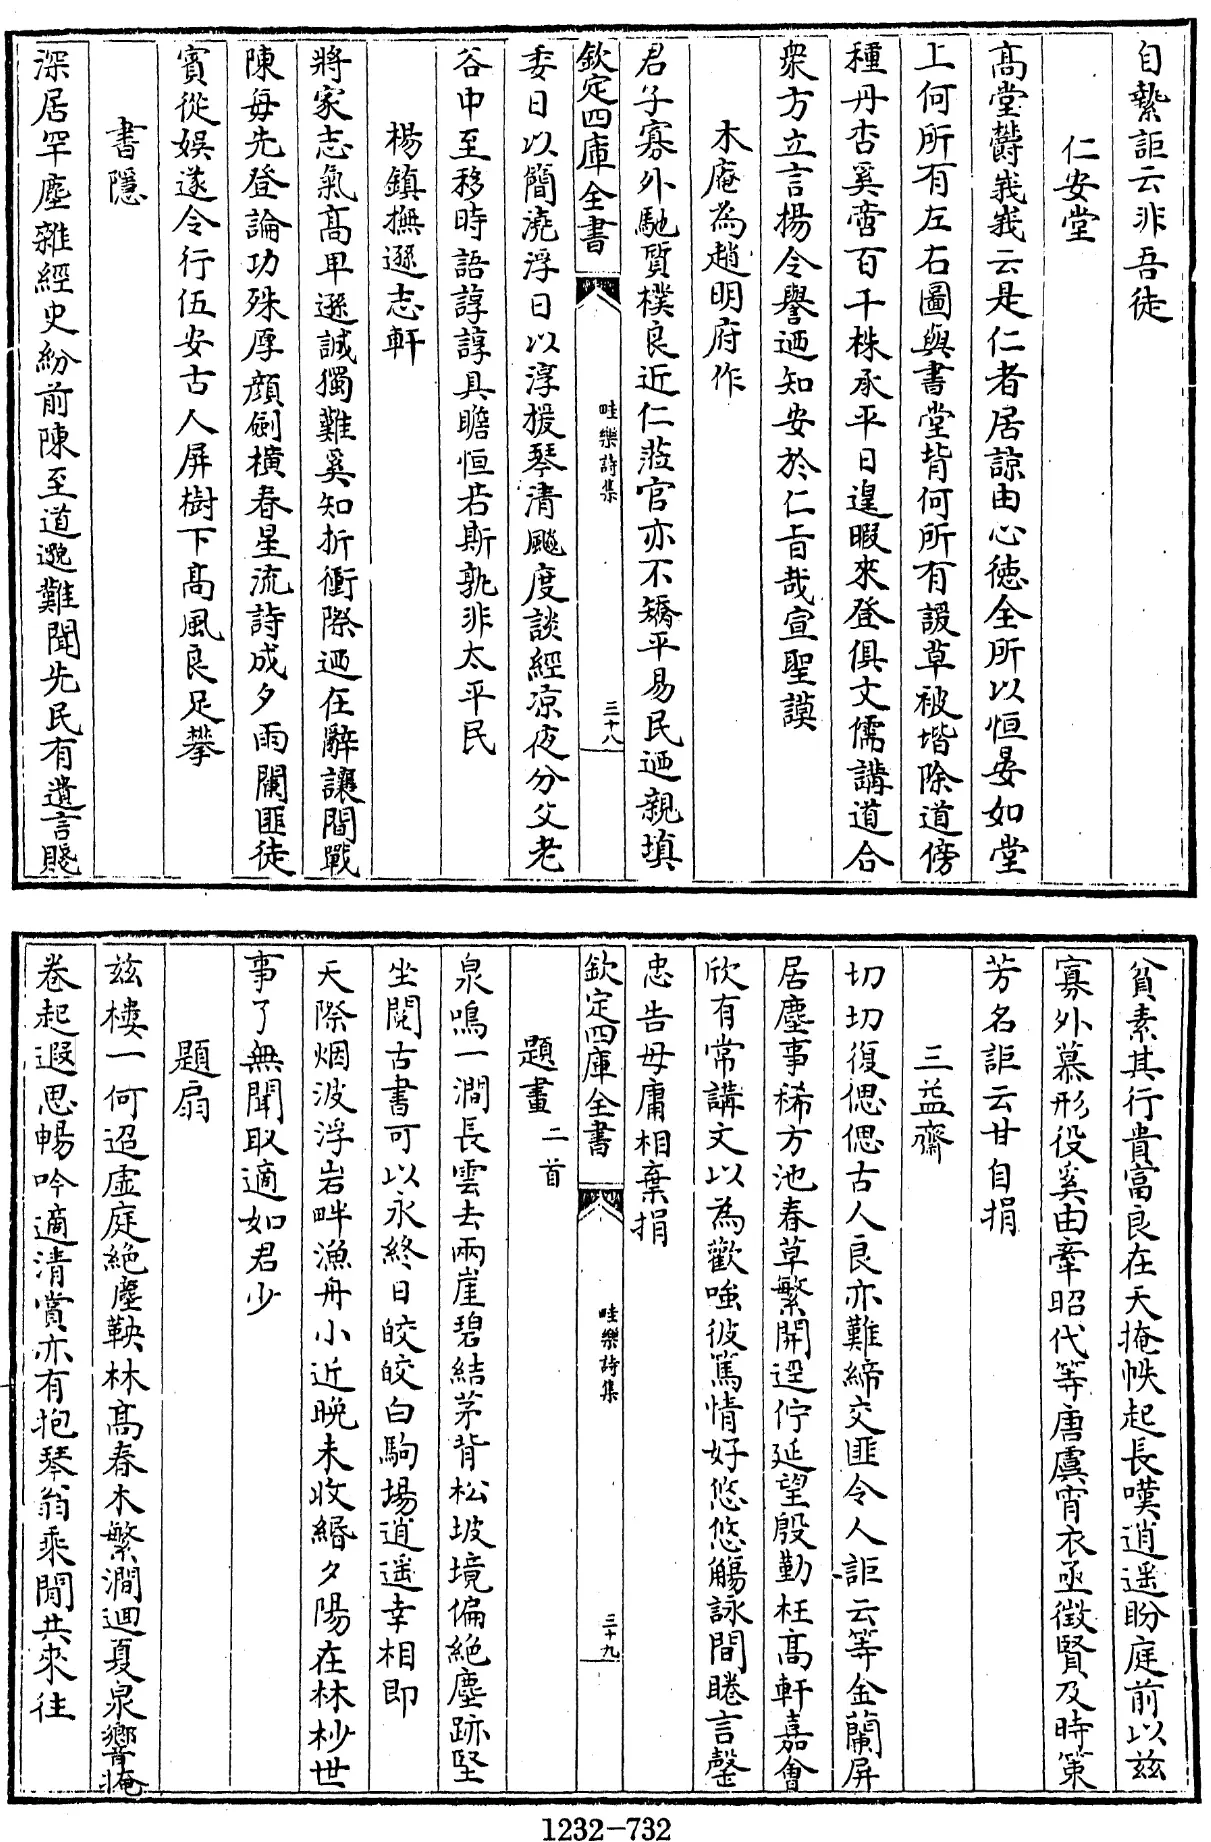 自縶詎云非吾徒
仁安堂
高堂鬱峩峩云是仁者居諒由心徳全所以恒晏如堂
上何所有左右圖與書堂背何所有諼草被堦除道傍
種丹杏奚啻百千株承平日遑暇來登俱文儒講道合
衆方立言揚令譽迺知安於仁旨哉宣聖謨
木庵為趙明府作
君子寡外馳質樸良近仁蒞官亦不矯平易民迺親填
欽定四庫全書
哇樂詩集
三十八
委日以簡澆浮日以淳援琴清飈度談經凉夜分父老
谷中至移時語諄諄具瞻恒若斯孰非太平民
楊鎮撫遜志軒
將家志氣高卑遜誠獨難奚知折衝際迺在辭讓間戰
陳每先登論功殊厚顔劍横春星流詩成夕雨闌匪徒
賓從娱遂令行伍安古人屏樹下高風良足攀
書隱
深居罕塵雜經史紛前陳至道邈難聞先民有遺言賤
貧素其行貴富良在天掩帙起長嘆逍遥盼庭前以兹
寡外慕形役奚由牽昭代等唐虞宵衣亟徴賢及時策
芳名詎云甘自捐
三益齋
切切復偲偲古人良亦難締交匪令人詎云等金蘭屏
居塵事稀方池春草繁開逕佇延望殷勤枉高軒嘉會
欣有常講文以為歡嗤彼篤情好悠悠觴詠間睠言罄
忠告毋庸相棄捐
欽定四庫全書
哇樂詩集
三十九
題畫二首
泉鳴一澗長雲去兩崖碧結茅背松坡境偏絶塵跡堅
坐閲古書可以永終日皎皎白駒場逍遥幸相即
天際烟波浮岩畔漁舟小近晩未收緡夕陽在林杪世
事了無聞取適如君少
題扇
兹樓一何迢虚庭絶塵鞅林高春木繁澗迴夏泉響掩
卷起遐思暢吟適清賞亦有抱琴翁乘閒共來往
1232-732